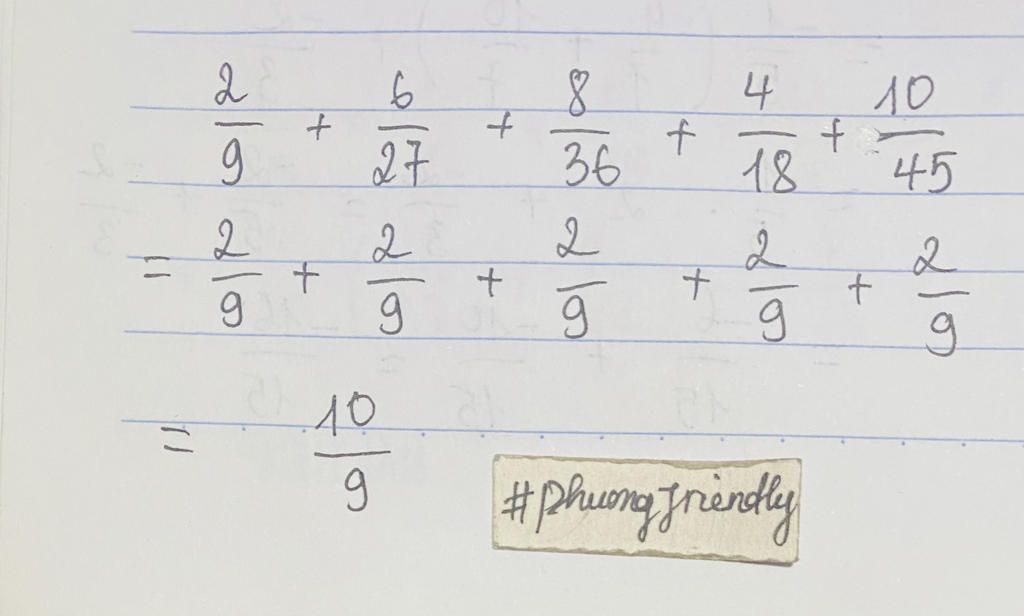 2/9 + 6/27 + 8/36 + 4/18 + 10/45
= 2/9 + 2/9 + 2/9 + 2/9 + 2/9
= 10/9
#Phuongfriendly